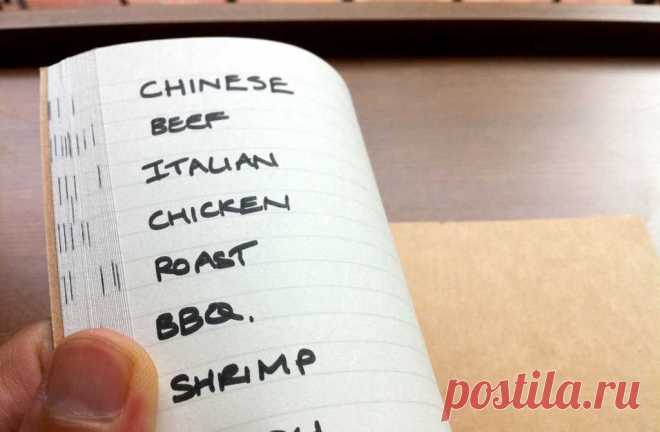 CHINESE
BEEF
ITALIAN
CHICKEN
ROAST
BBQ.
SHRIMP
postila.ru